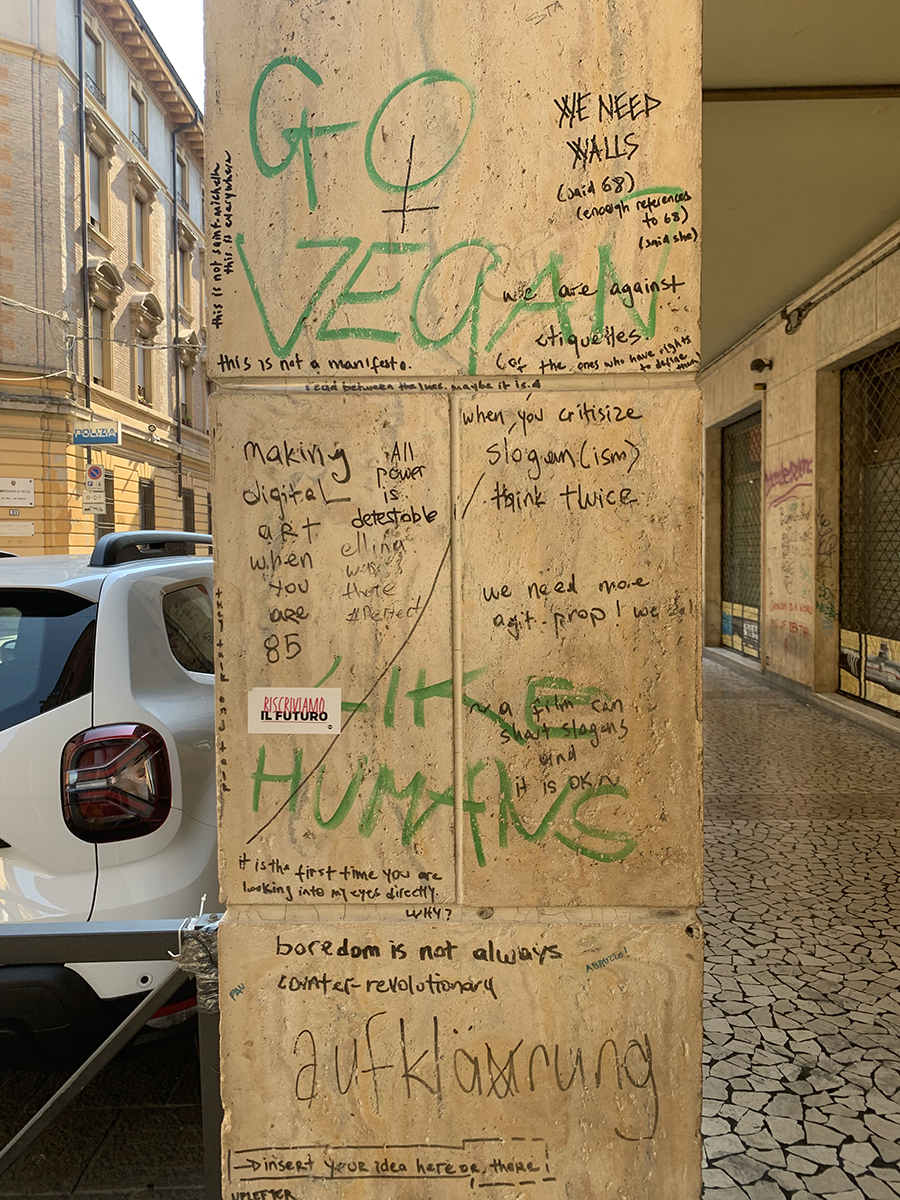 GO
VEGAN
WE NEED
WALLS
(said 68)
(enough references
to 68)
(said she)
this is not saint-michelle
this is everywhere
we are against
etiquettes
the ones who have rights
to define
this is not a manifesto.
read between the lines. maybe it is.
when you critisize
slogan(ism)
think twice
making
digital
art
when
you
are
85
All
power
is
detestable
we need more
agit-prop! we
LIKE
HUMANS
a film can
start slogans
and
it is OK
RISCRIVIAMO
IL FUTURO
it is the first time you are
looking into my eyes directly.
WHY?
boredom is not always
counter-revolutionary
PAU
aufklärung
→ insert your idea here or, there!
UPLEFTER
POLIZIA
21